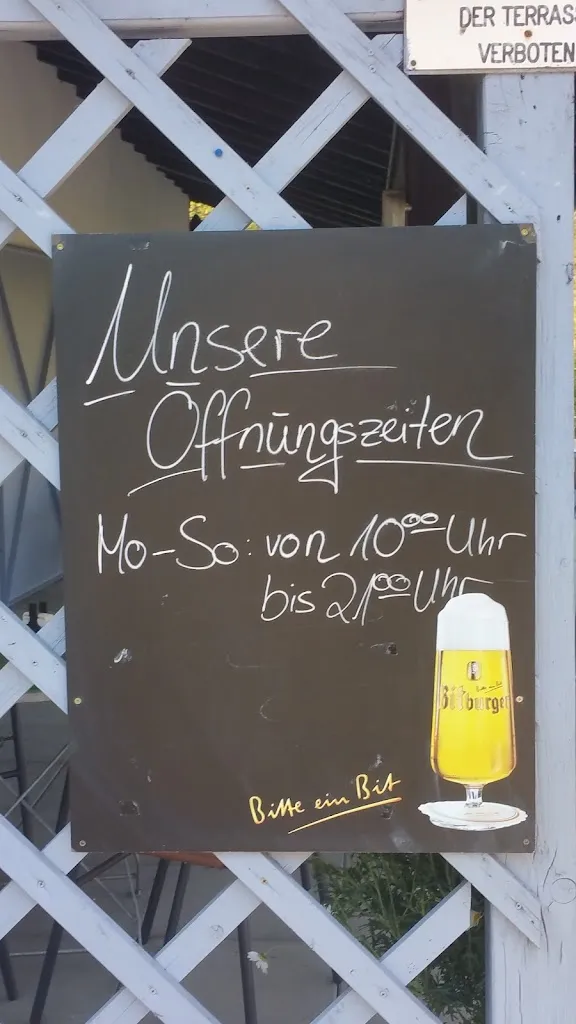 DER TERRAS
VERBOTEN
Unsere
Öffnungszeiten
Mo-So: von 10⁰⁰ Uhr
bis 21⁰⁰ Uhr
Bitburger
Bitte ein Bit